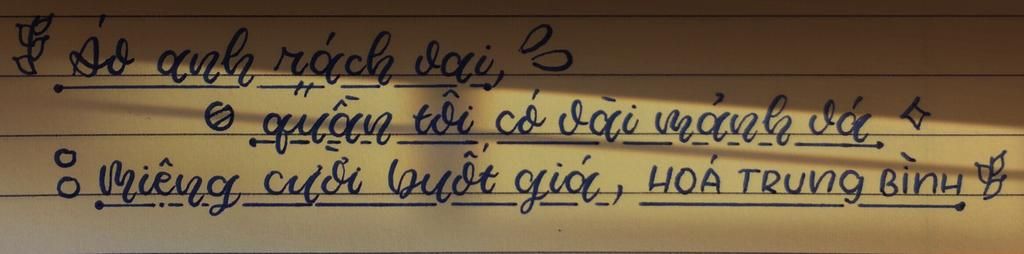 Áo anh rách vai,
quần tôi có vài mảnh vá
Miệng cười buốt giá, HOÁ TRUNG BÌNH